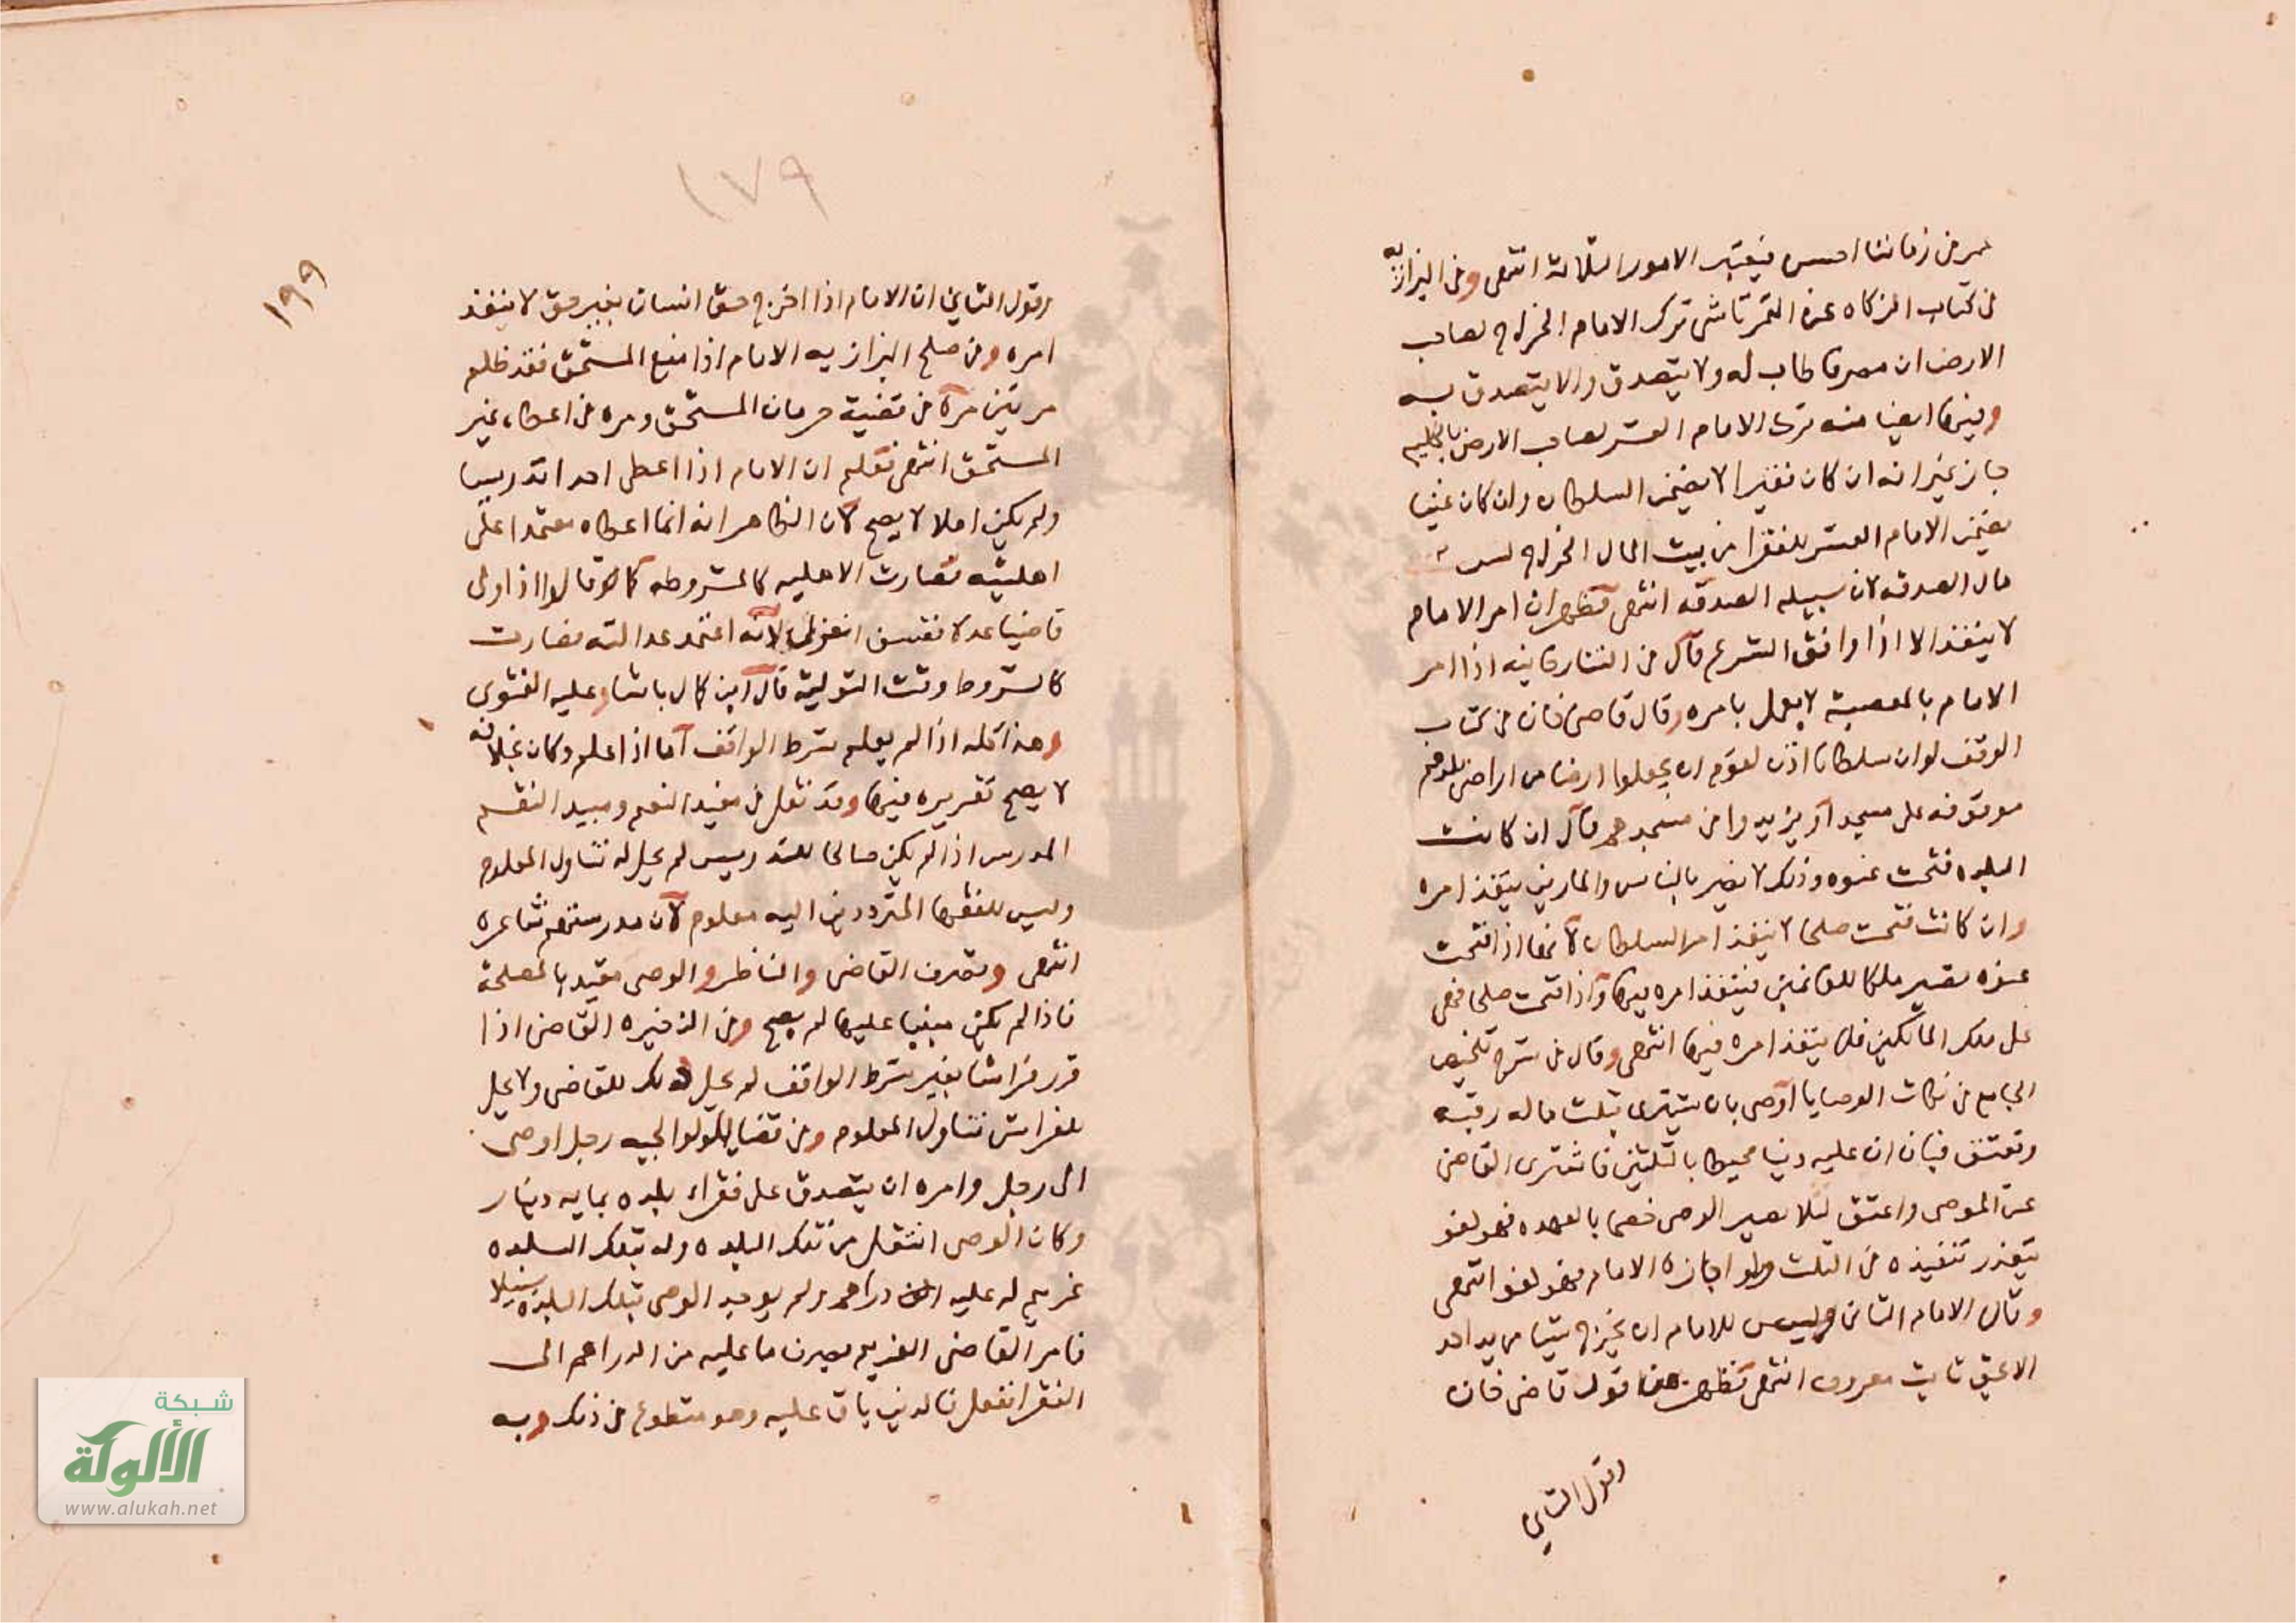 عمر في زماننا احسن فيعتبر الامور الثلاثة انتهى وفي البزازيه
في كتاب الزكاه عن التمرتاشى ترك الامام الخراج لصاحب
الارض ان مصرفا طاب له ولا يتصدق والا يتصدق به
وفيها ايضا منه ترك الامام العشر لصاحب الارض
جاز غير انه ان كان فقيرا لا يضمن السلطان وان كان غنيا
يضمن الامام العشر للفقرا من بيت المال الخراج لبيت
مال الصدقه لان سبيله الصدقه انتهى فظهر ان امر الامام
لا ينفذ الا اذا وافق الشرع قال في التتارخانيه اذا امر
الامام بالمعصية لا يعمل بامره وقال قاضى خان في كتاب
الوقف لو ان سلطانا اذن لقوم ان يجعلوا ارضا من اراضى
موقوفه على مسجد او يزيدوا في مسجدهم قال ان كانت
البلده فتحت عنوه وذلك لا يضر بالناس والمارين ينفذ امره
وان كانت فتحت صلحا لا ينفذ امر السلطان لانها اذا فتحت
عنوه تصير ملكا للغانمين فينفذ امره فيها واذا فتحت صلحا فهى
على ملك المالكين فلا ينفذ امره فيها انتهى وقال في شرح تلخيص
الجامع في نكات الوصايا اوصى بان يشترى بثلث ماله رقبه
وتعتق فبان ان عليه دينا محيطا بالثلثين فاشترى القاضى
عن الموصى واعتق لئلا يصير الوصى خصما بالعهده فهو لغو
يتعذر تنفيذه من الثلث ولو اجازه الامام فهو لغو انتهى
وقال الامام الثانى وليس للامام ان يخرج شيا من يد احد
الا بحق ثابت معروف انتهى فظهر من هذا قول قاضى خان
وقول الثاني
١٧٩
١٩٩
وقول الثاني ان الامام اذا اخرج حق انسان بغير حق لا ينفذ
امره وفي صلح البزازيه الامام اذا منع المستحق فقد ظلم
مرتين مرة في قضية حرمان المستحق ومره في اعطاء غير
المستحق انتهى فعلم ان الامام اذا اعطى احدا تدريسا
ولم يكن اهلا لا يصح لان الظاهر انه انما اعطاه معتمدا على
اهليته فصارت الاهليه كالمشروطه كما قالوا اذا ولى
قاضيا عدلا ففسق انعزل لانه اعتمد عدالته فصارت
كالشروط وقت التولية قال ابن كمال باشا وعليه الفتوى
وهذا كله اذا لم يعلم شرط الواقف اما اذا علم وكان بخلافه
لا يصح تقريره فيها وقد نقل في مفيد النعم ومبيد النقم
المدرس اذا لم يكن صالحا للتدريس لم يحل له تناول المعلوم
وليس للفقها المترددين اليه معلوم لان مدرستهم شاغره
انتهى وتصرف القاضى والناظر والوصى مقيد بالمصلحة
فاذا لم يكن مبنيا عليها لم يصح وفي الذخيره القاضى اذا
قرر فراشا بغير شرط الواقف لم يحل ذلك للقاضى ولا يحل
للفراش تناول المعلوم وفي قضايا الولوالجيه رجل اوصى
الى رجل وامره ان يتصدق على فقراء بلده بمايه دينار
وكان الوصى انتقل من تلك البلده وله بتلك البلده
غريم له عليه الف دراهم ولم يوجد الوصى بتلك البلده سبيلا
فامر القاضى الغريم بصرف ما عليه من الدراهم الى
الفقرا ففعل فالدين باق عليه وهو متطوع في ذلك وبه
شبكة
الألوكة
www.alukah.net